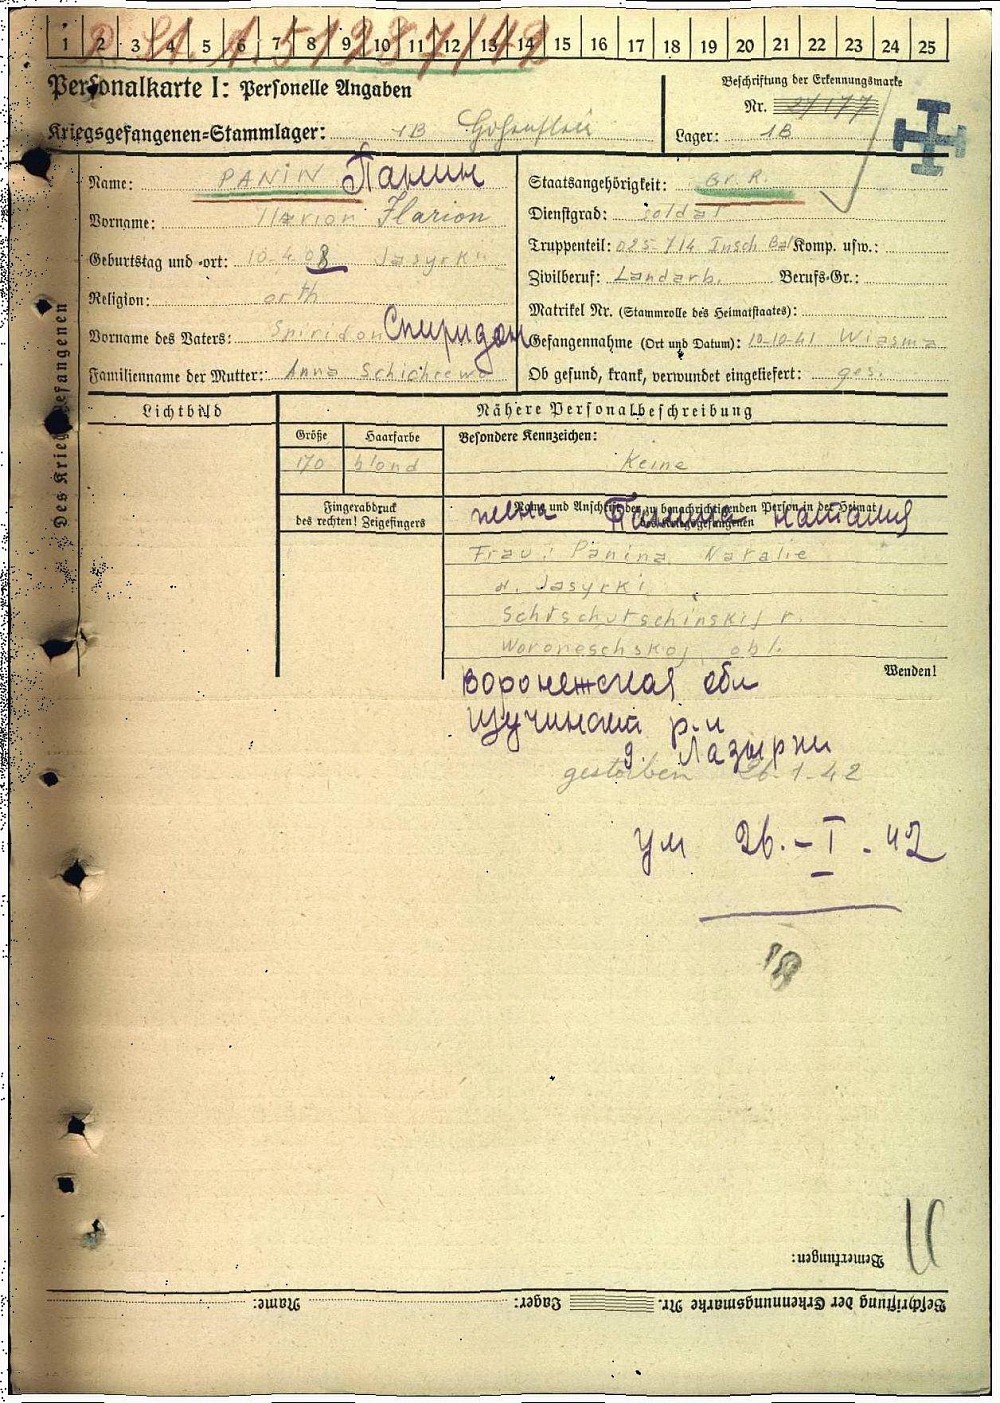 1 2 3 4 5 6 7 8 9 10 11 12 13 14 15 16 17 18 19 20 21 22 23 24 25
Personalkarte I: Personelle Angaben
Beschriftung der Erkennungsmarke
Nr.
Kriegsgefangenen-Stammlager: 1B Hohenstein
Lager: 1B
Des Kriegsgefangenen
Name: PANIN Панин
Vorname: Ilarion Ilarion
Geburtstag und -ort: 10.4.08 Jasyrki
Religion: orth
Vorname des Vaters: Spiridon Спиридон
Familienname der Mutter: Anna
Staatsangehörigkeit:
Dienstgrad: soldat
Truppenteil: Komp. usw.:
Zivilberuf: Landarb. Berufs-Gr.:
Matrikel Nr. (Stammrolle des Heimatstaates):
Gefangennahme (Ort und Datum): 10-10-41 Wiasma
Ob gesund, krank, verwundet eingeliefert: ges.
Lichtbild
Nähere Personalbeschreibung
Größe Haarfarbe Besondere Kennzeichen:
170 blond Keine
Fingerabdruck
des rechten! Zeigefingers
Name und Anschrift der zu benachrichtigenden Person in der Heimat
des Kriegsgefangenen
жена Панина Наталия
Frau: Panina Natalie
d. Jasyrki
Schtschutschinskij r.
Woroneschskoj obl.
Wenden!
Воронежская обл
Щучинский р-н
д. Лазырки
gestorben 26-1-42
ум 26.-I-42
Bemerkungen:
Beschriftung der Erkennungsmarke Nr. Lager: Name: